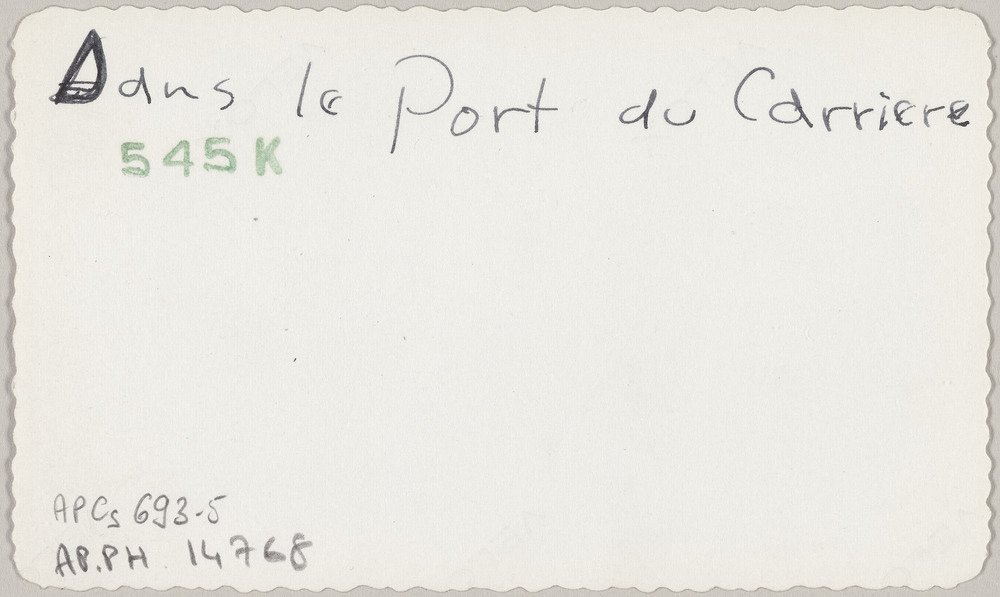 Dans le Port du Carriere
545K
APCs 693-5
AP.PH 14768